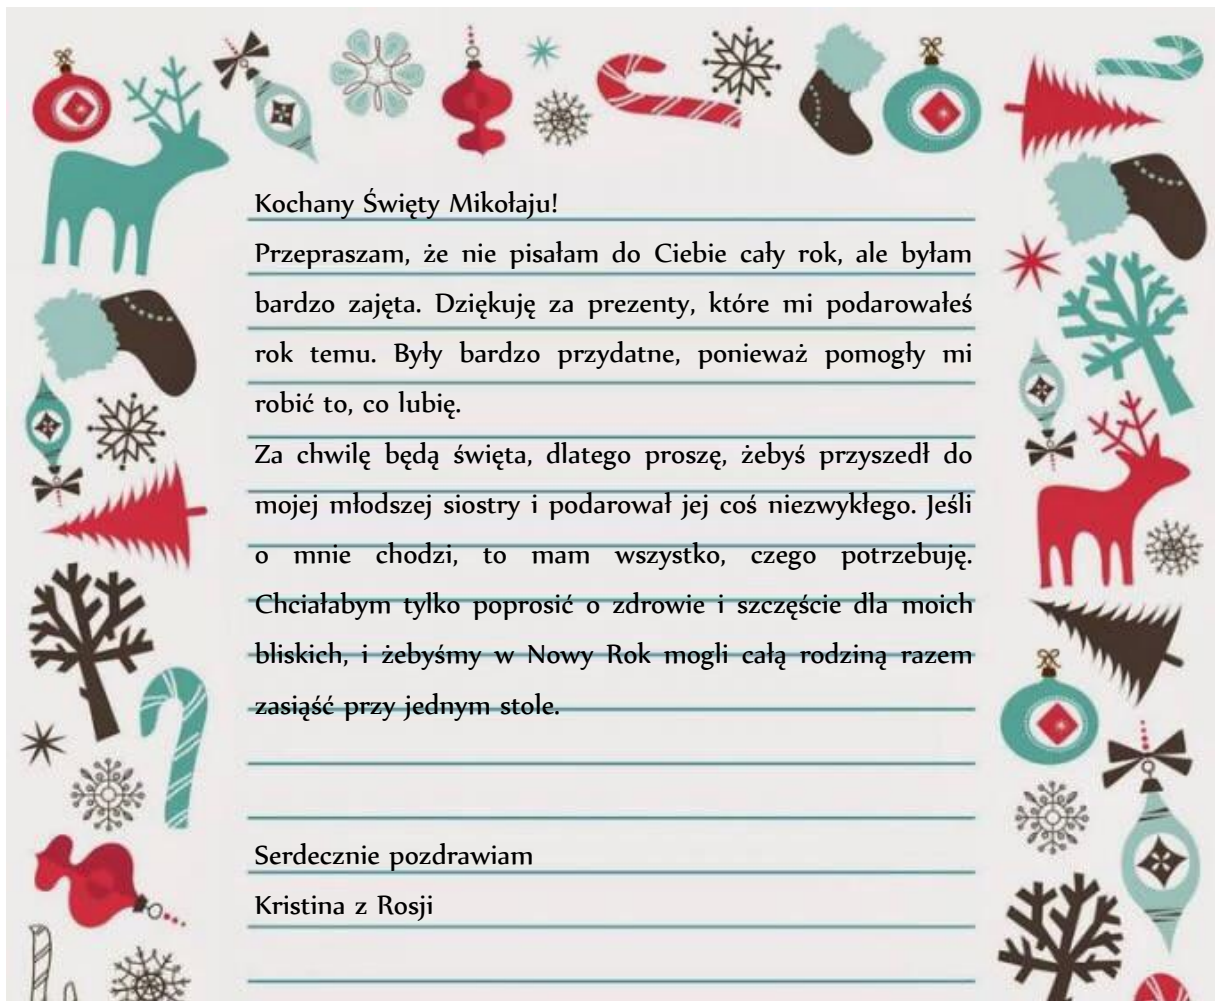 Kochany Święty Mikołaju!
Przepraszam, że nie pisałam do Ciebie cały rok, ale byłam
bardzo zajęta. Dziękuję za prezenty, które mi podarowałeś
rok temu. Były bardzo przydatne, ponieważ pomogły mi
robić to, co lubię.
Za chwilę będą święta, dlatego proszę, żebyś przyszedł do
mojej młodszej siostry i podarował jej coś niezwykłego. Jeśli
o mnie chodzi, to mam wszystko, czego potrzebuję.
Chciałabym tylko poprosić o zdrowie i szczęście dla moich
bliskich, i żebyśmy w Nowy Rok mogli całą rodziną razem
zasiąść przy jednym stole.
Serdecznie pozdrawiam
Kristina z Rosji